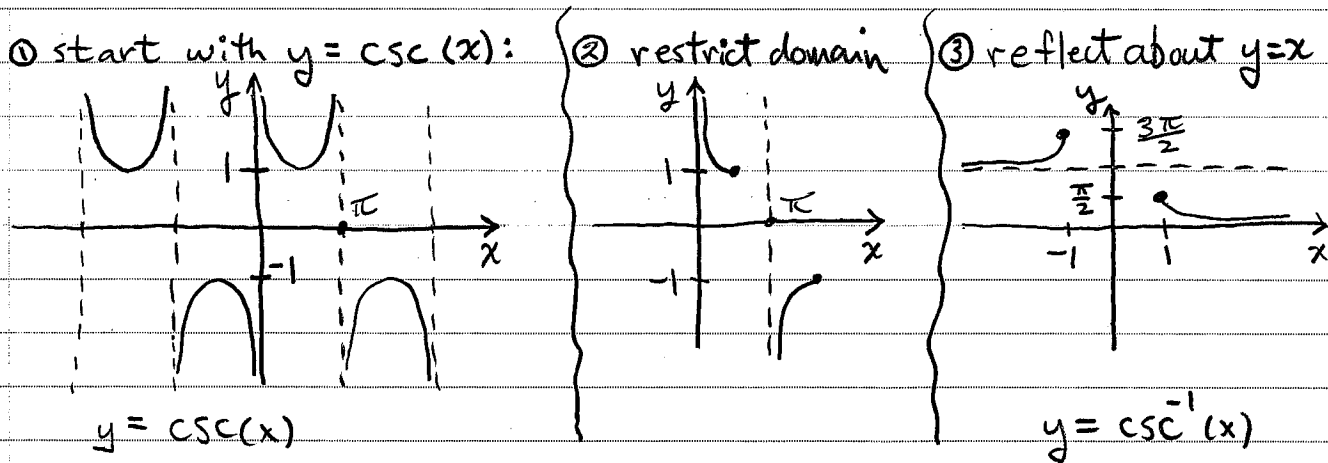 ① start with y = csc(x):
y
1
π
x
-1
y = csc(x)
② restrict domain
y
1
π
x
-1
③ reflect about y=x
y
3π/2
π/2
-1
1
x
y = csc⁻¹(x)